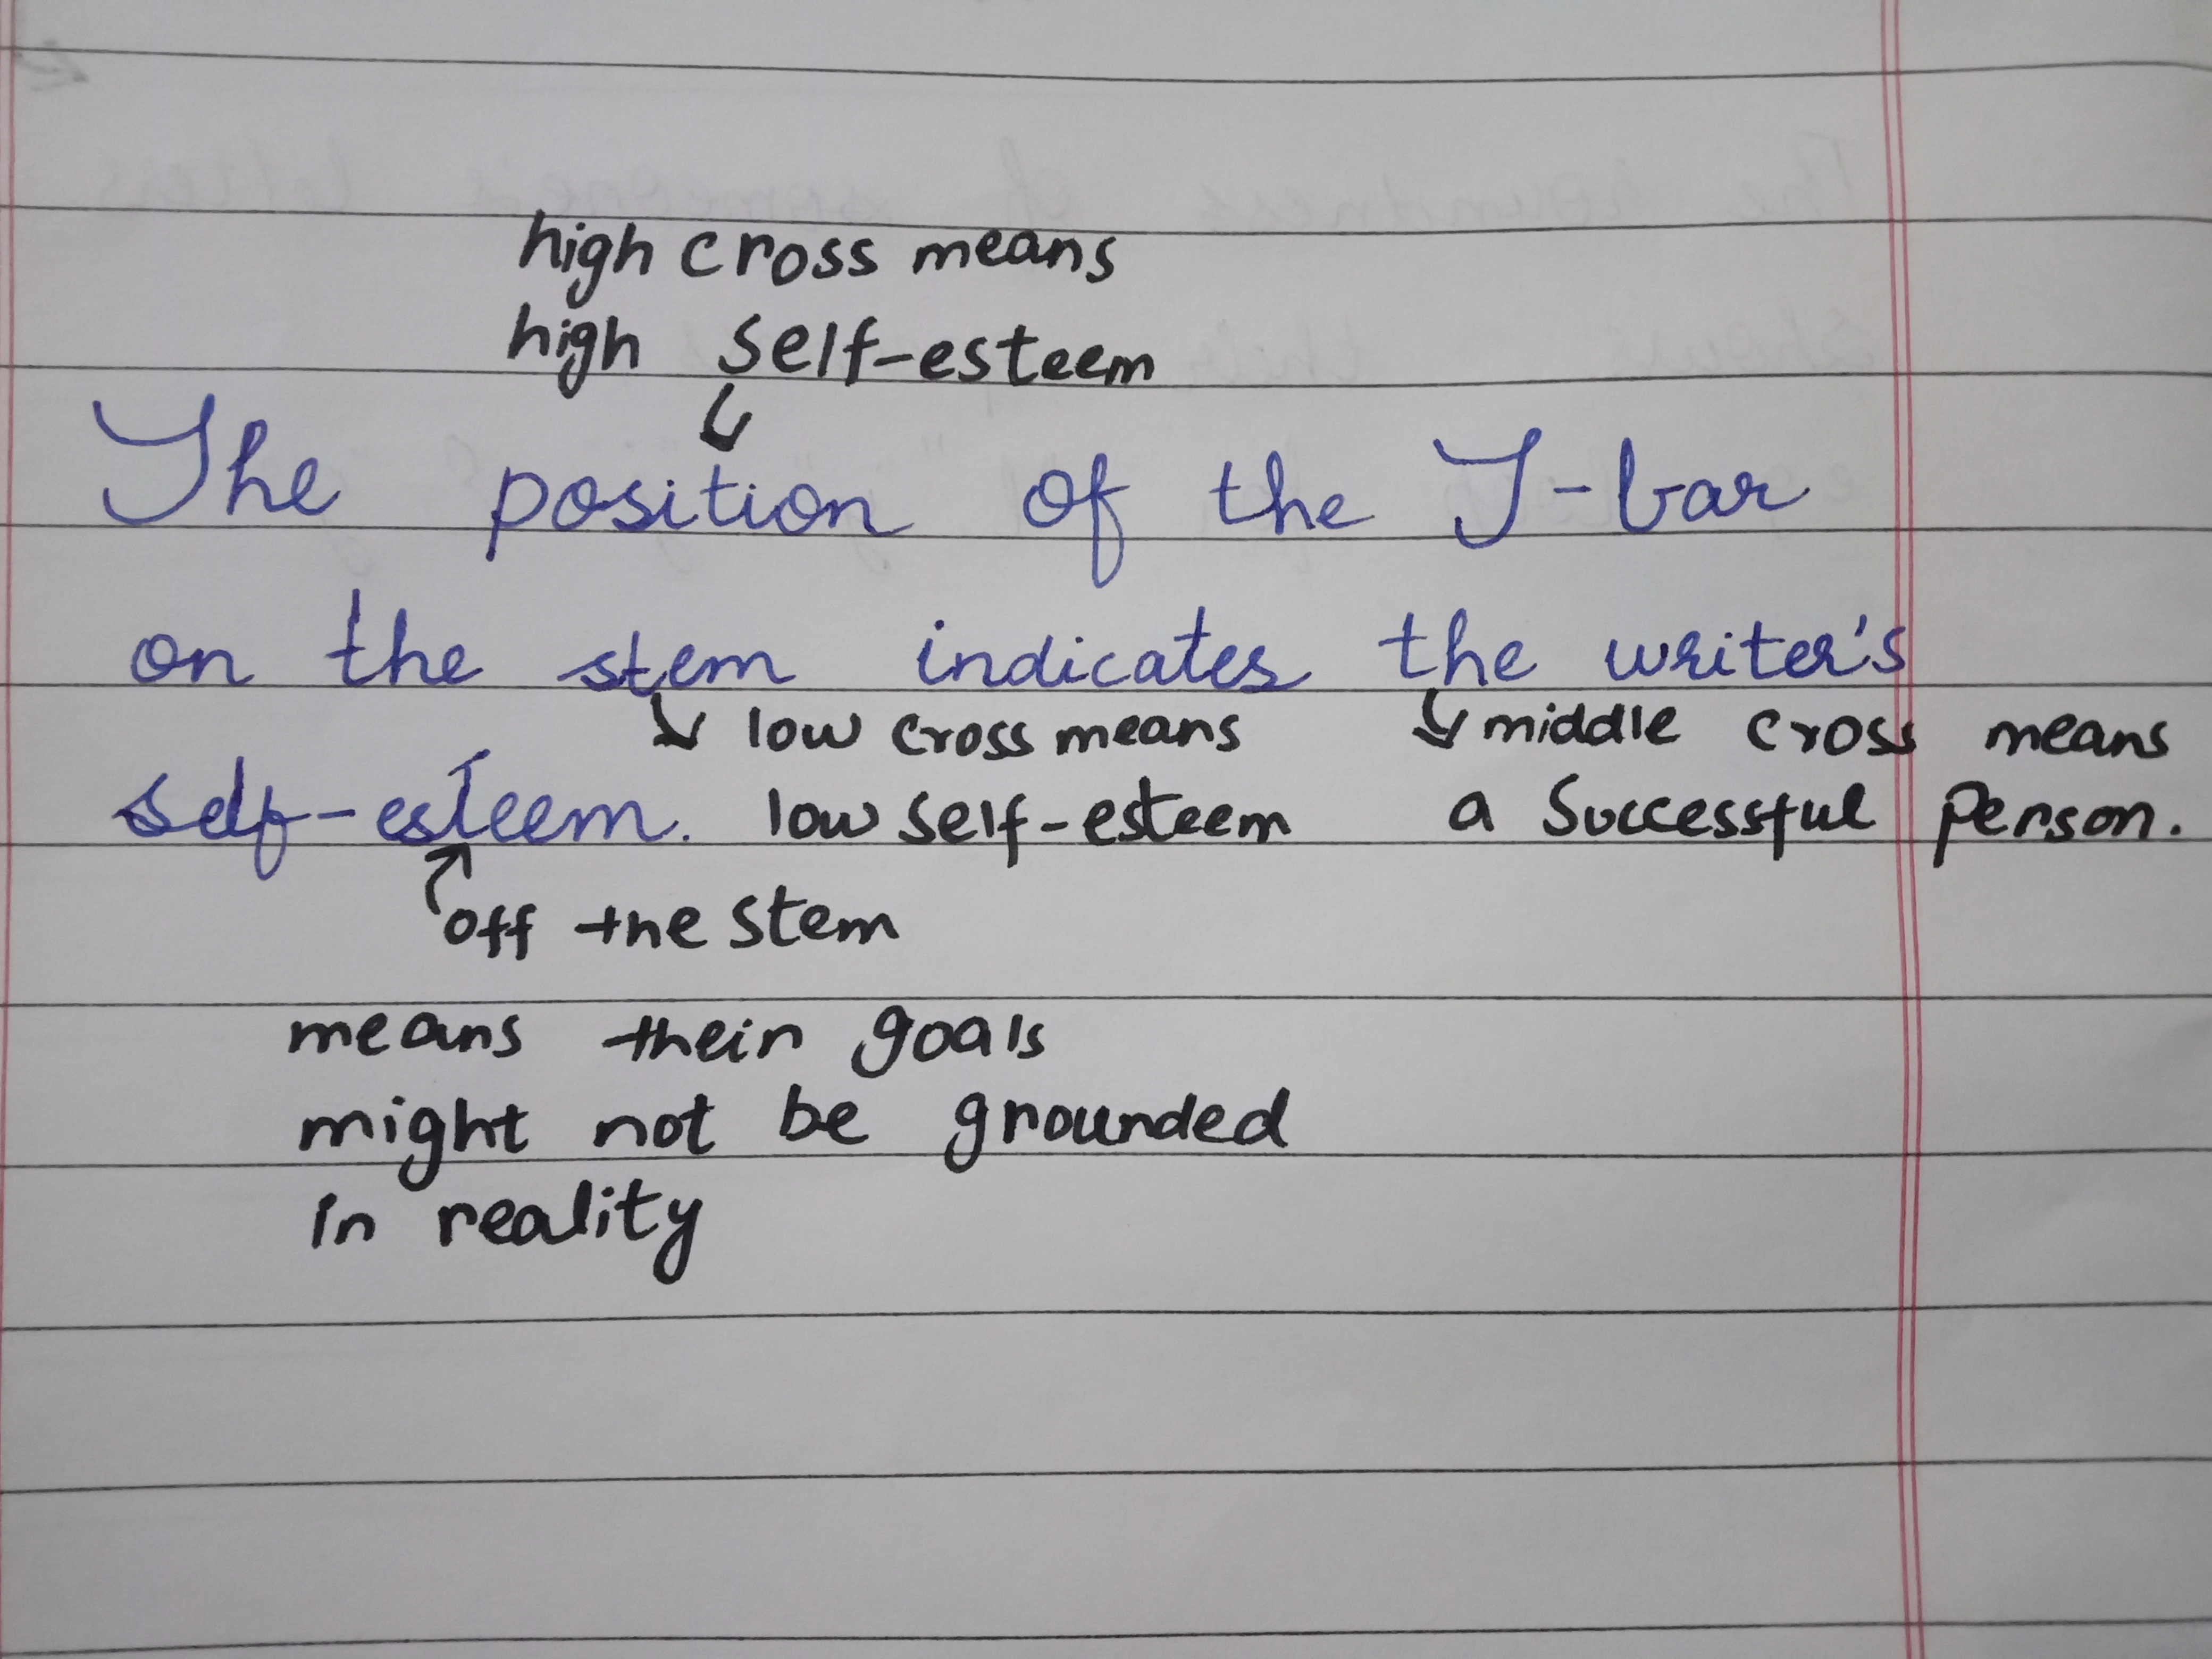 high cross means
high self-esteem
The position of the T-bar
on the stem indicates the writer's
low cross means middle cross means
self-esteem. low self-esteem a Successful person.
off the stem
means their goals
might not be grounded
in reality